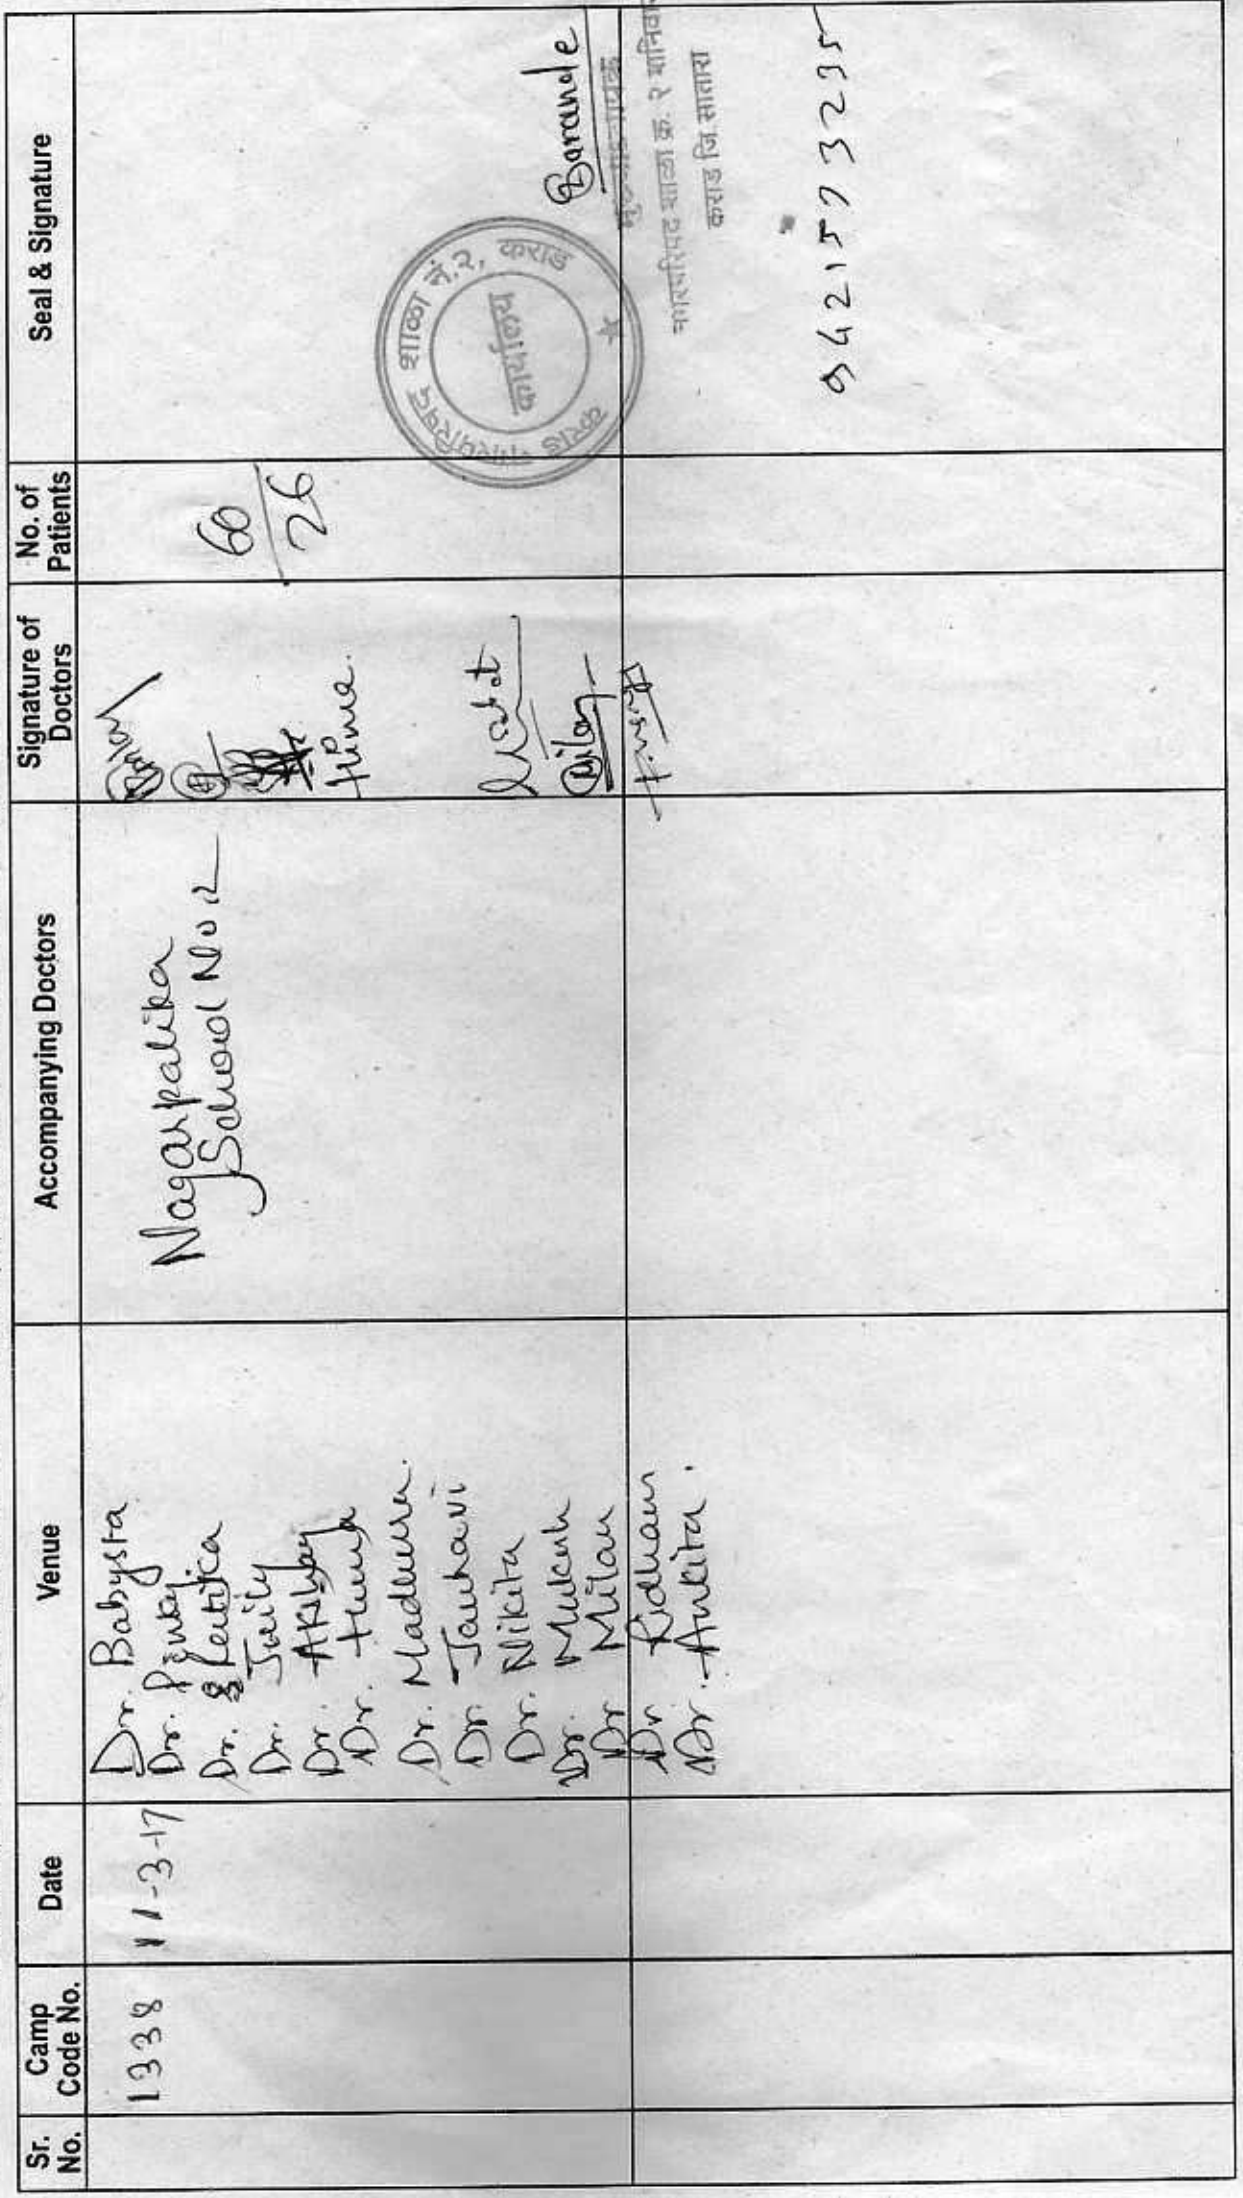 Sr. No.
Camp Code No.
Date
Venue
Accompanying Doctors
Signature of Doctors
No. of Patients
Seal & Signature
1338
11-3-17
Dr. Babysta
Dr. Pinky
Dr.
Dr. Juily
Dr. Akshay
Dr. Huma
Dr. Madhura.
Dr. Janhavi
Dr. Nikita
Dr. Mukul
Dr Milan
Dr Ridham
Dr. Ankita.
Nagarpalika
School No 2
Huma.
Milan
60
26
कराड नगरपरिषद शाळा नं.२, कराड
कार्यालय
मुख्याध्यापक
नगरपरिषद शाळा क्र. २
कराड जि.सातारा
9421573235